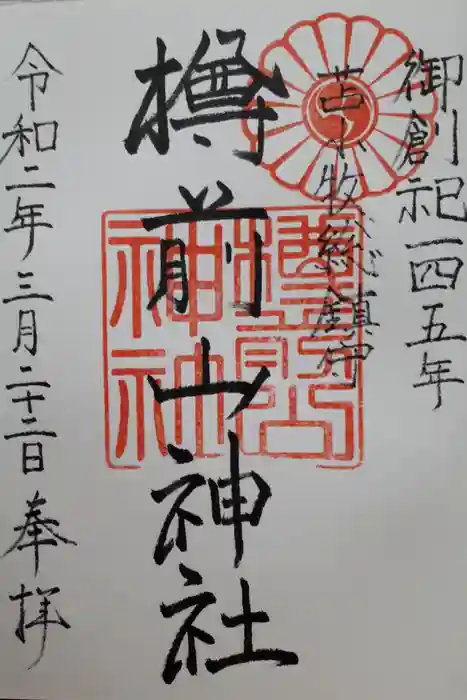 御創祀一四五年
苫小牧総鎮守
樽前山神社
樽前山神社
令和二年三月二十二日 奉拝